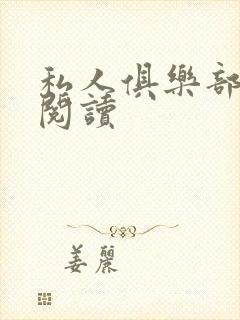 私人俱樂部
閱讀
姜麗